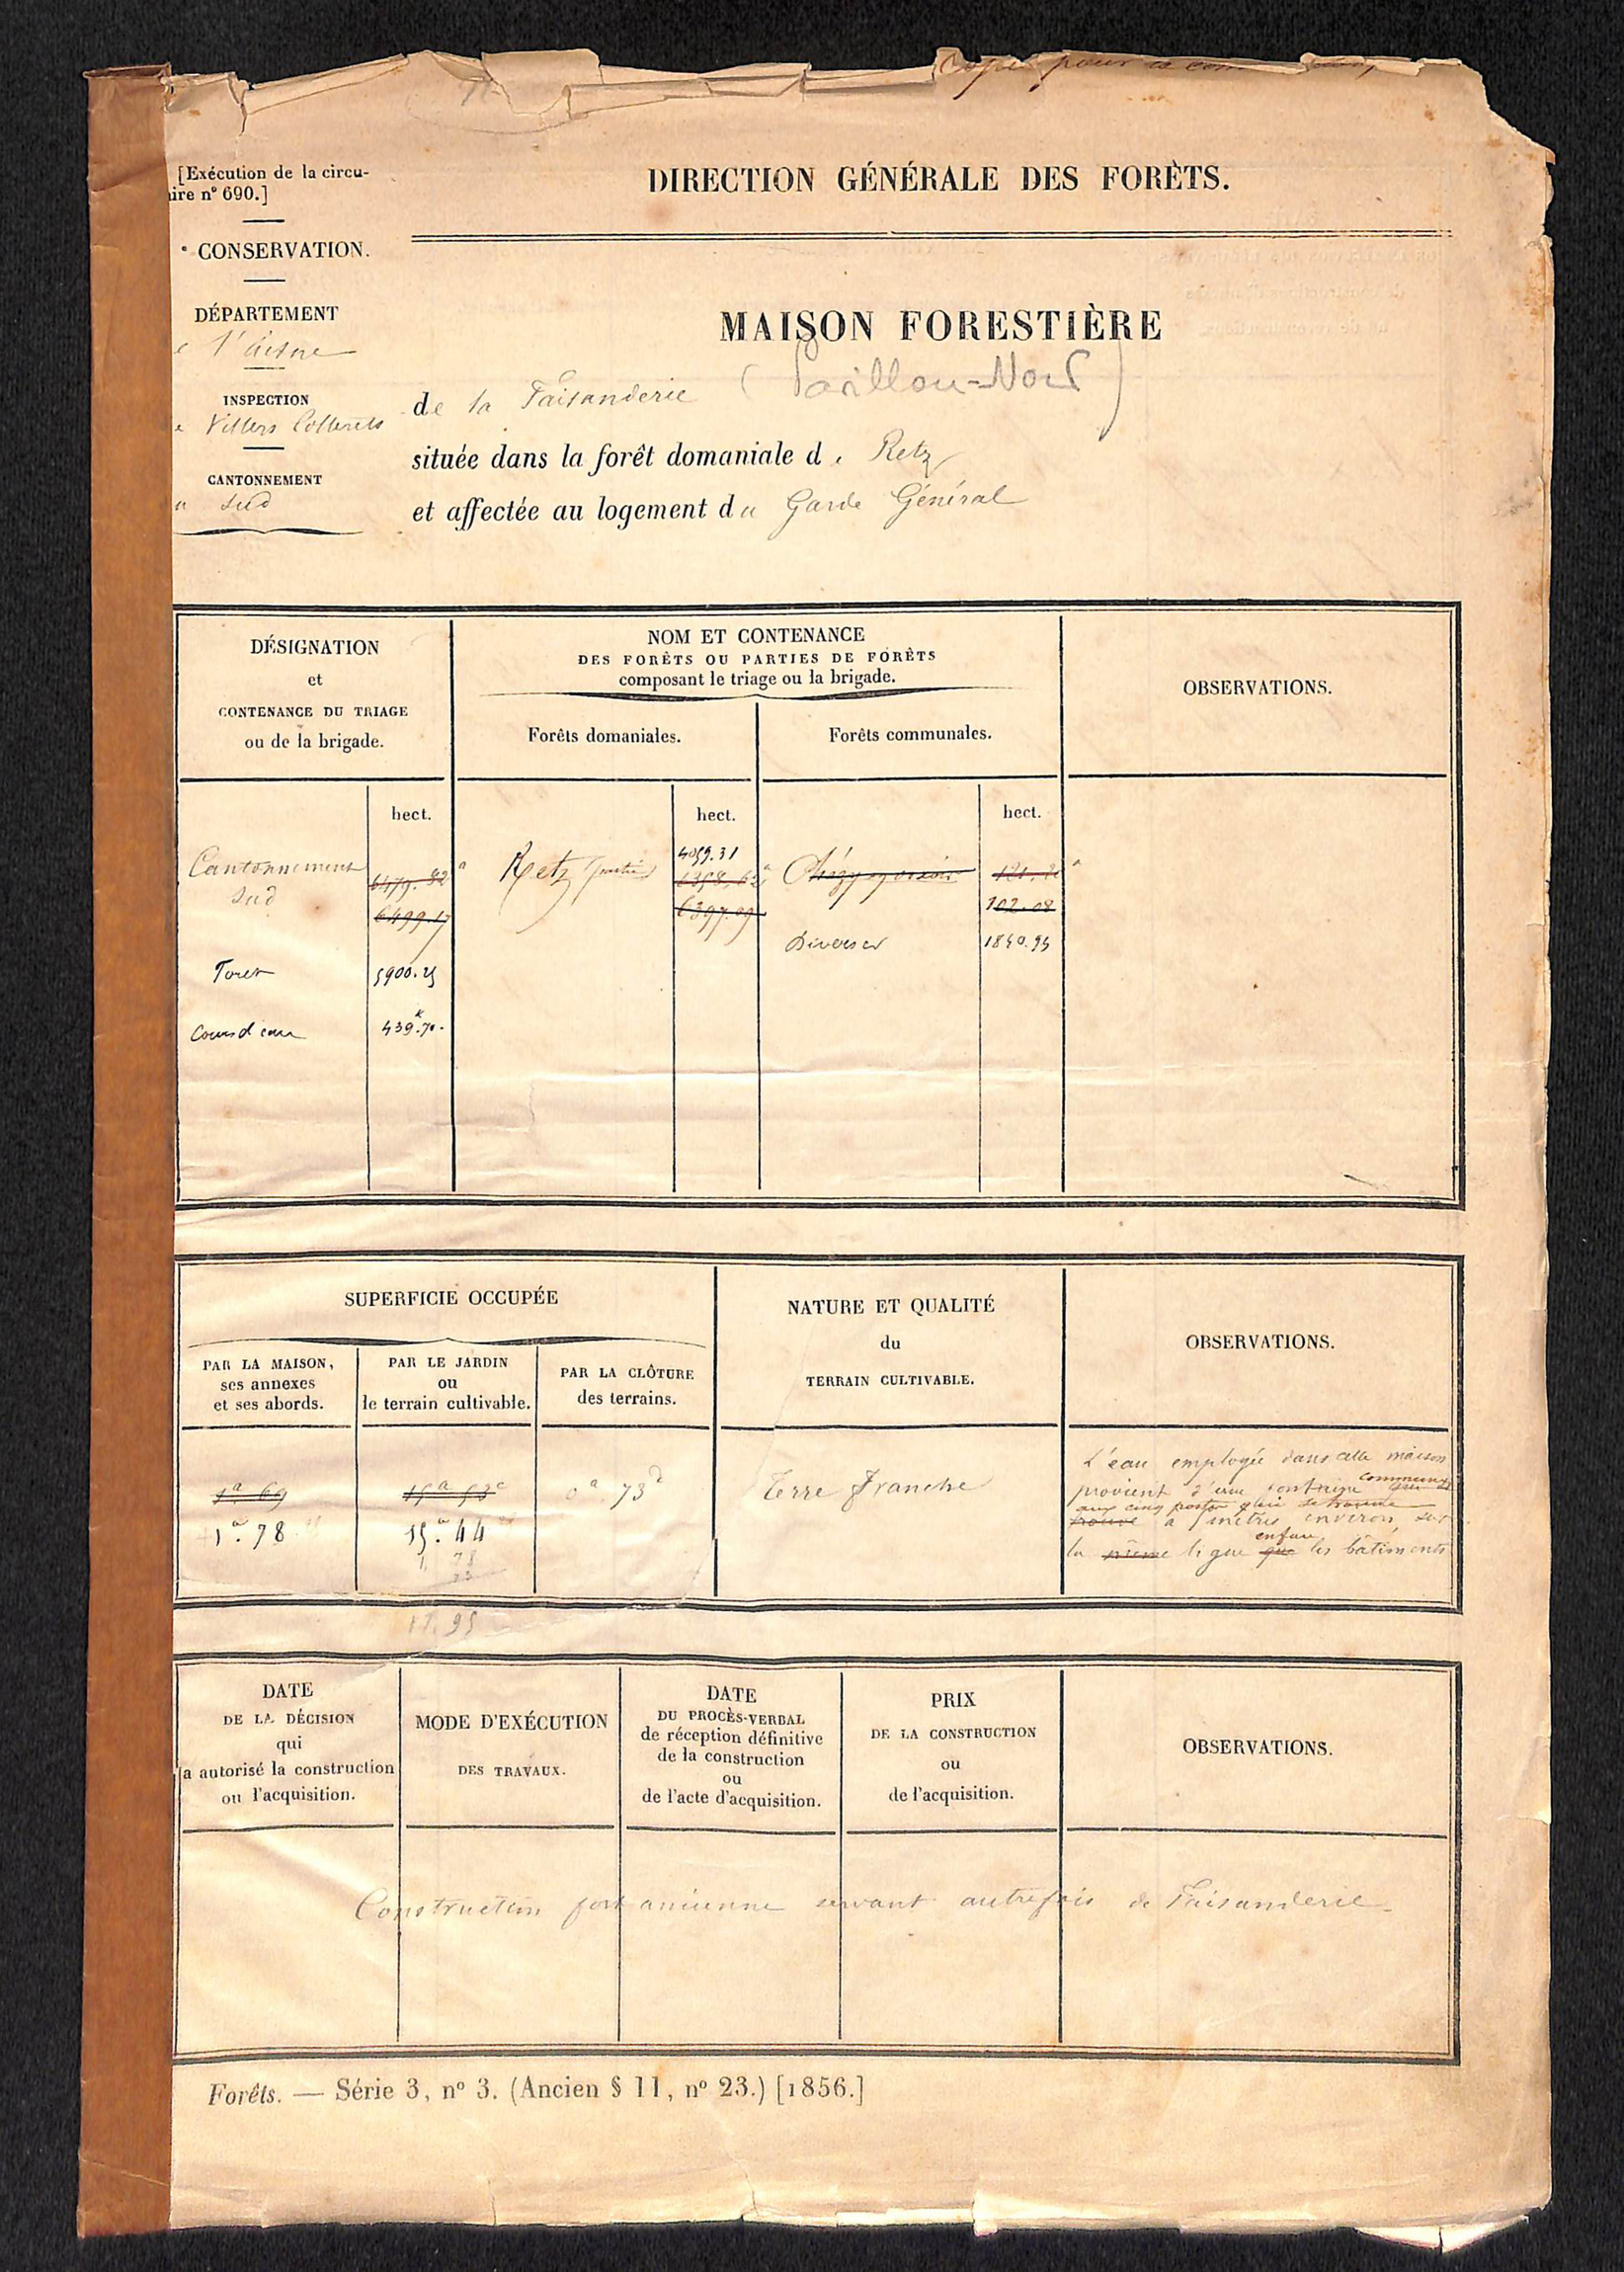 Copie pour la
[Exécution de la circu-
aire n° 690.]
DIRECTION GÉNÉRALE DES FORÊTS.
CONSERVATION.
DÉPARTEMENT
e l'Aisne
INSPECTION
e Villers Cotterets
CANTONNEMENT
u Sud
MAISON FORESTIÈRE
de la Faisanderie (Pavillon-Nord)
située dans la forêt domaniale de Retz
et affectée au logement du Garde Général
DÉSIGNATION
et
CONTENANCE DU TRIAGE
ou de la brigade.
NOM ET CONTENANCE
DES FORÊTS OU PARTIES DE FORÊTS
composant le triage ou la brigade.
Forêts domaniales.
Forêts communales.
OBSERVATIONS.
hect.
hect.
hect.
Cantonnement
Sud
6479.82
6499.17
Foret
5900.25
Cours d'eau
439k.70.
Retz (partie)
4059.31
6358.62
6397.09
Chézy en orxois
121.20
102.08
Diverses
1840.94
SUPERFICIE OCCUPÉE
PAR LA MAISON,
ses annexes
et ses abords.
PAR LE JARDIN
ou
le terrain cultivable.
PAR LA CLÔTURE
des terrains.
NATURE ET QUALITÉ
du
TERRAIN CULTIVABLE.
OBSERVATIONS.
1a 69
1a.78
15a 53c
15a.44
1. 78
73
17.95
0a.73
Terre franche
L'eau employée dans cette maison
provient d'une fontaine commune
aux cinq postes qui se trouve
trouve à 5 mètres environ sur
la même ligne que les bâtiments
DATE
DE LA DÉCISION
qui
a autorisé la construction
ou l'acquisition.
MODE D'EXÉCUTION
DES TRAVAUX.
DATE
DU PROCÈS-VERBAL
de réception définitive
de la construction
ou
de l'acte d'acquisition.
PRIX
DE LA CONSTRUCTION
ou
de l'acquisition.
OBSERVATIONS.
Construction fort ancienne servant autrefois de Faisanderie.
Forêts. — Série 3, n° 3. (Ancien § 11, n° 23.) [1856.]